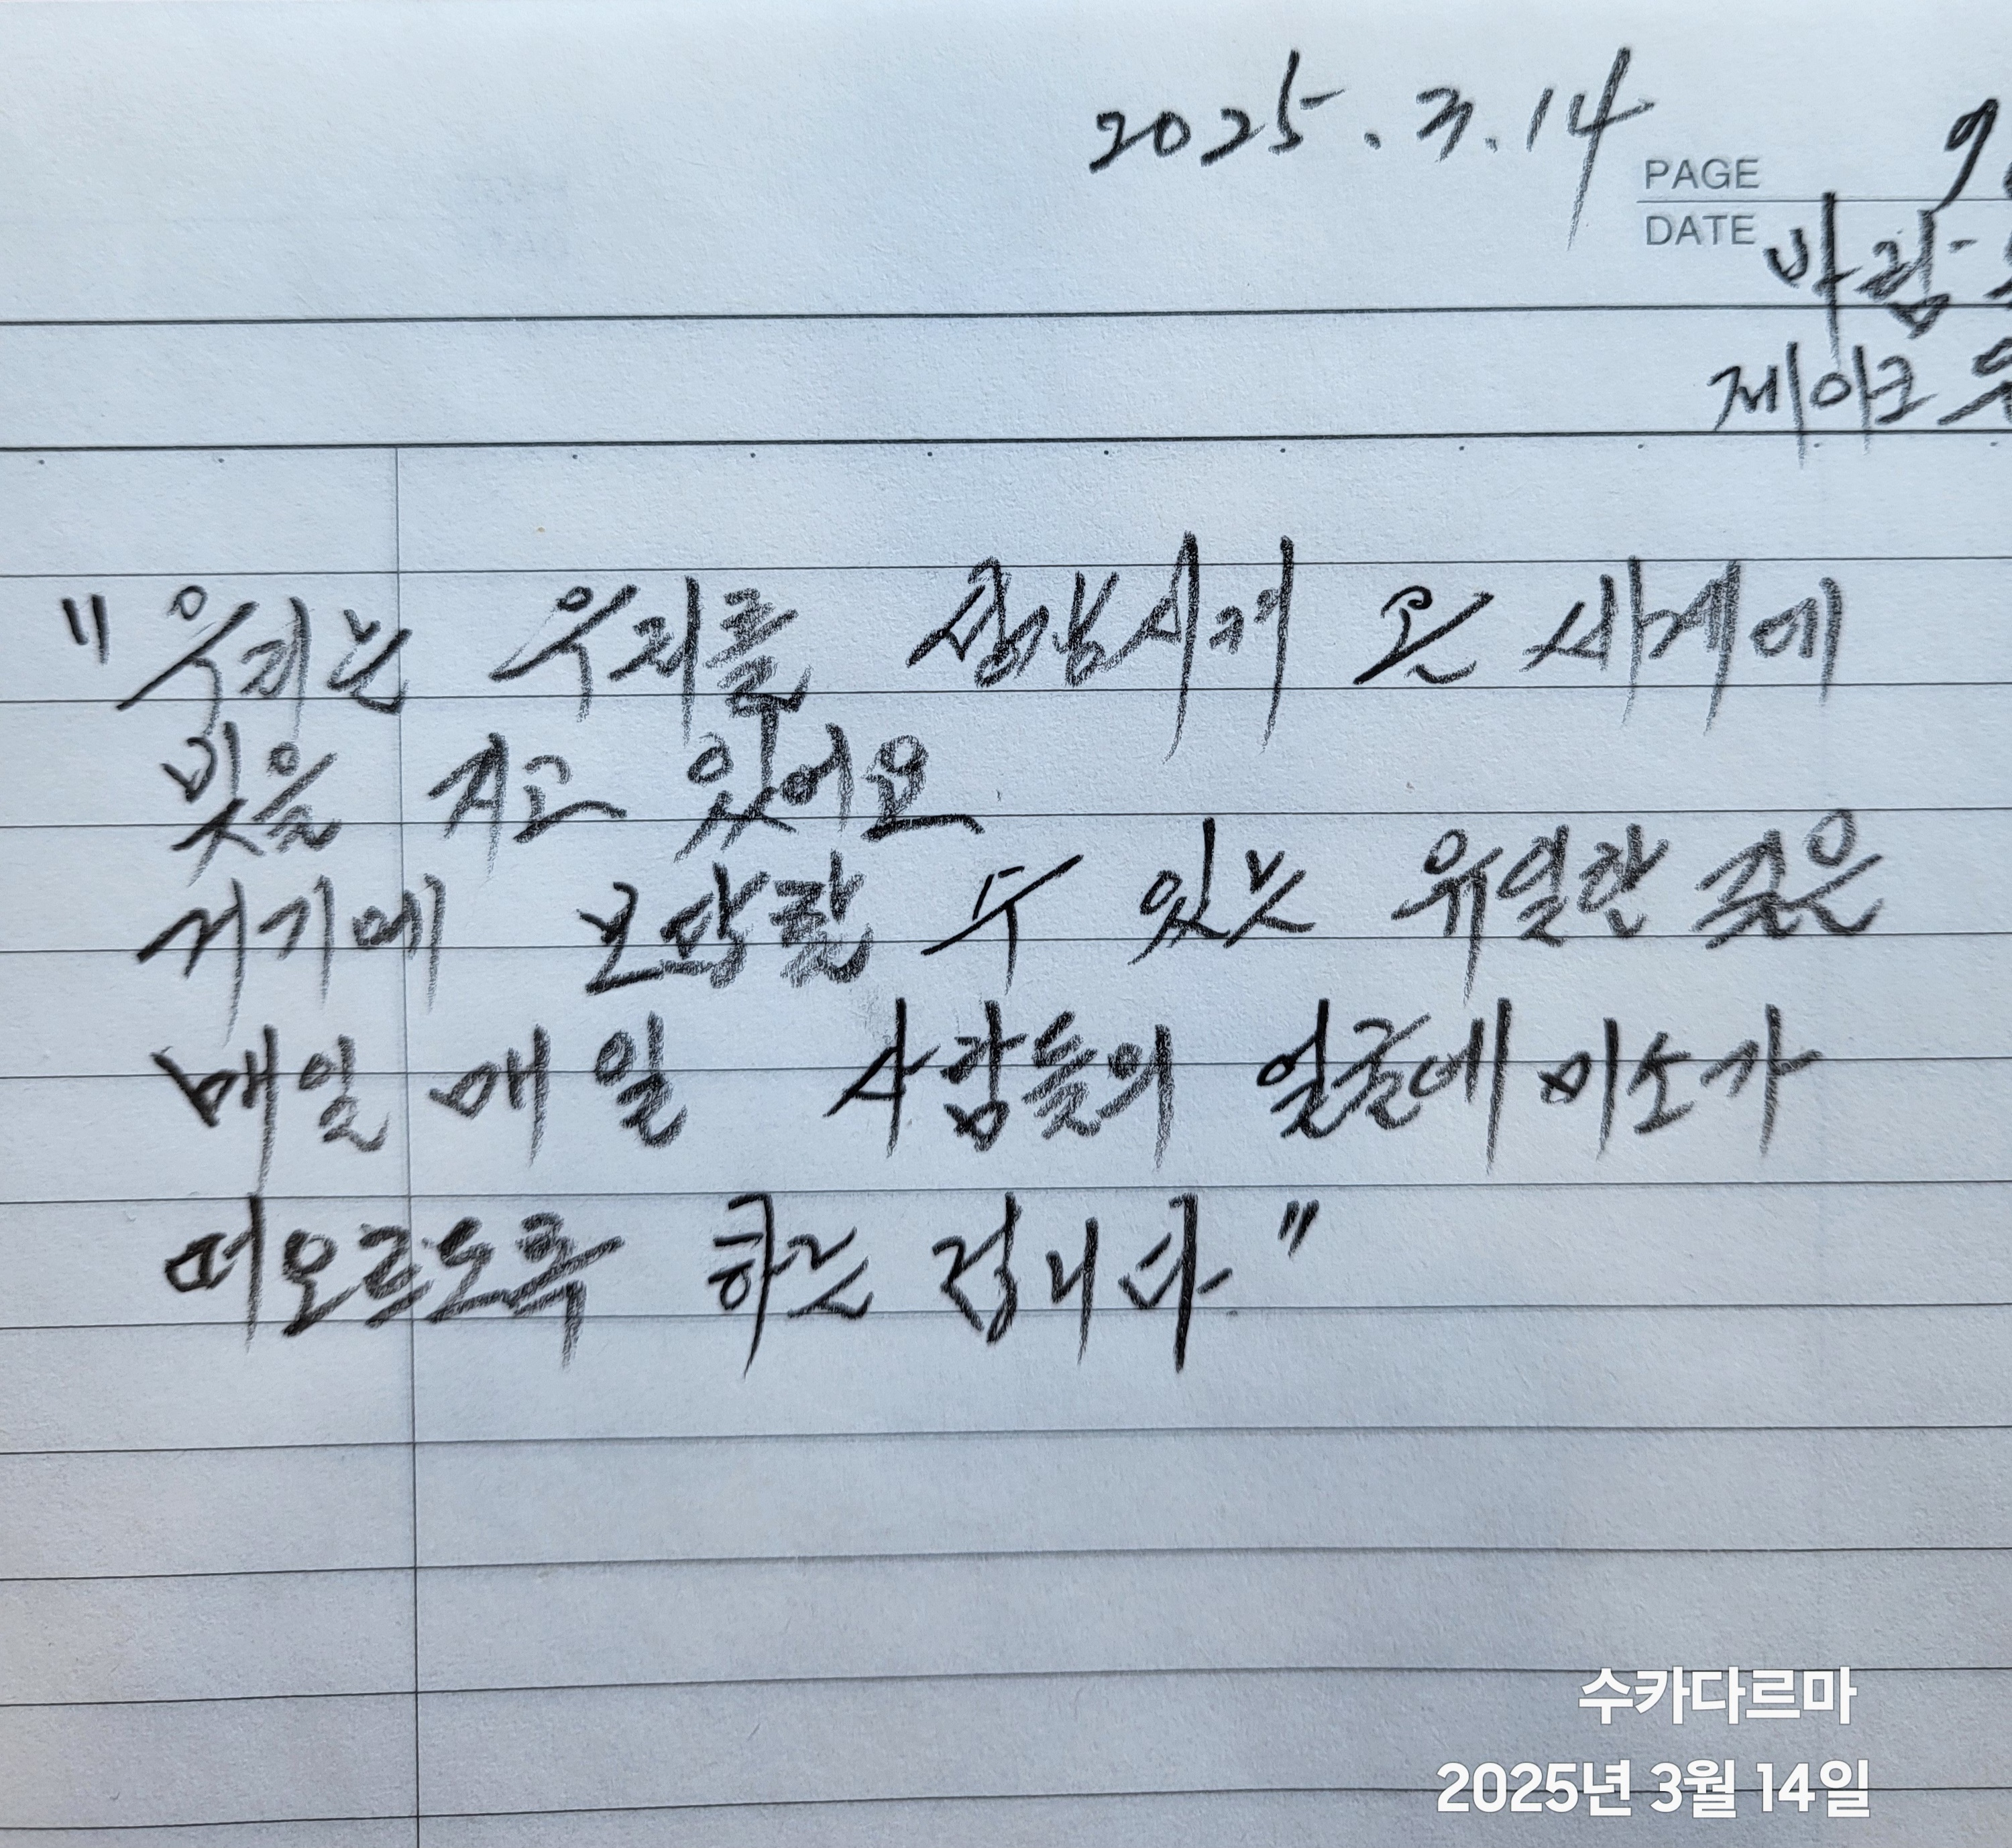 2025.3.14
PAGE
DATE
바람
제이크
"우리는 우리를 성장시켜 온 세계에
빚을 지고 있어요
거기에 보답할 수 있는 유일한 길은
매일 매일 사람들의 얼굴에 미소가
떠오르도록 하는 겁니다."
수카다르마
2025년 3월 14일